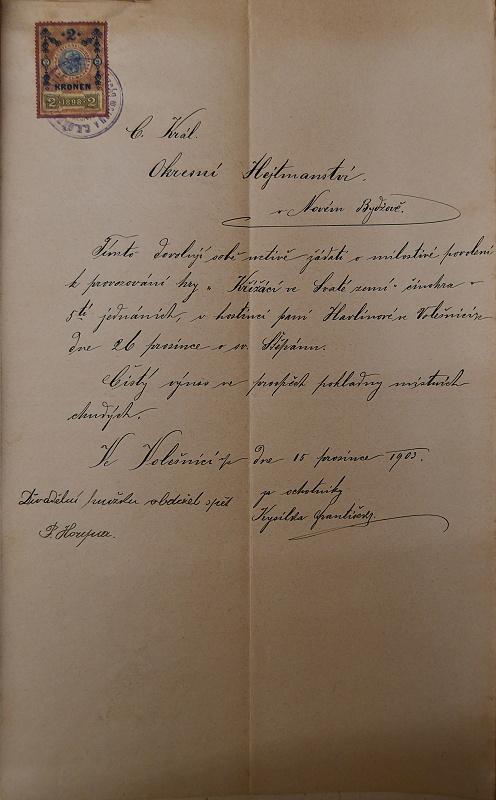 2
KRONEN
2 1898 2
C. Král.
Okresní Hejtmanství.
v Novém Bydžově.
Tímto dovoluji sobě uctivě žádati o milostivé povolení
k provozování hry „Křižáci ve Svaté zemi" činohra v
5ti jednáních, v hostinci paní Havlínové ve Volešnici
dne 26 prosince o sv. Štěpánu.
Čistý výnos ve prospěch pokladny místních
chudých.
Ve Volešnici dne 15 prosince 1903.
Divadelní knížku obdržel zpět
za ochotníky
Kysilka František